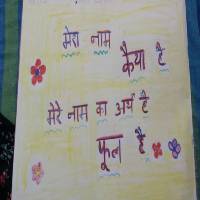 मेरा नाम
कैया है
मेरे नाम का अर्थ है
फूल है